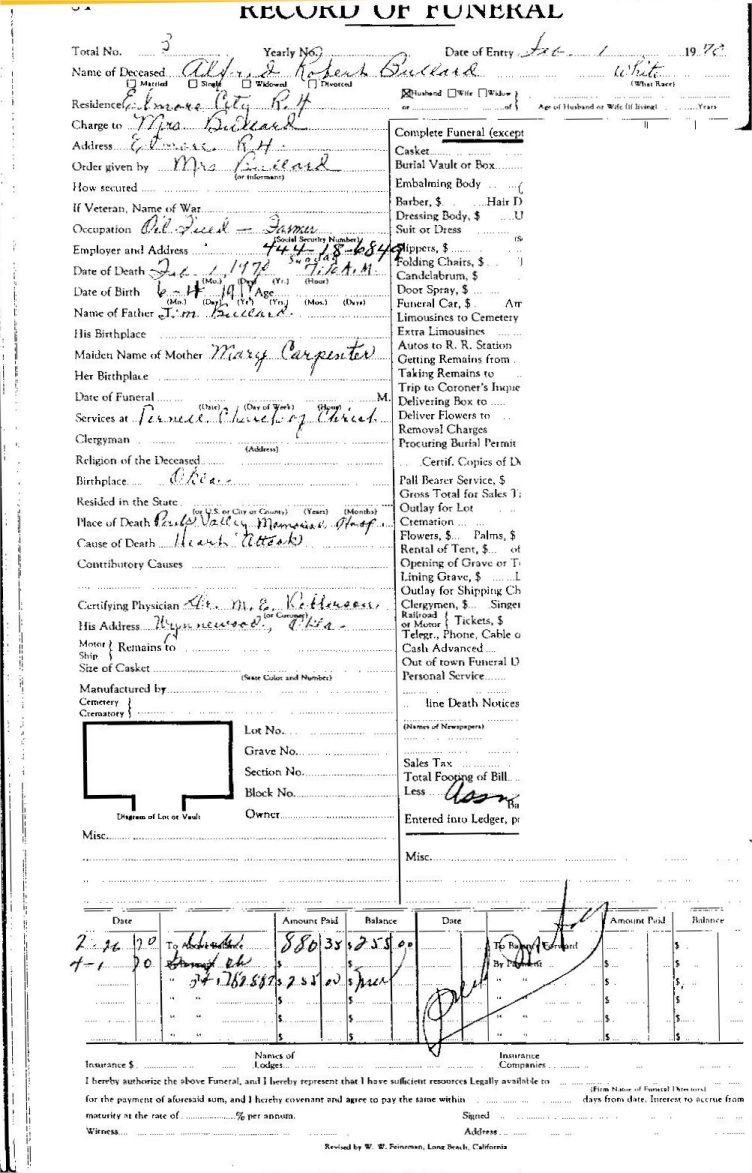 RECORD OF FUNERAL
Total No. 3 Yearly No. 3 Date of Entry Feb. 1 1970
Name of Deceased Robert Bullard White
Married Single Widowed Divorced (What Race)
Husband Wife Widow
Residence Elmore City R.4 or of Age of Husband or Wife (if living) Years
Charge to Mrs Bullard
Address Elmore R.4.
Order given by Mrs Bullard
(or informant)
How secured
If Veteran, Name of War
Occupation Oil Field - Farmer
(Social Security Number)
Employer and Address 444-18-6849
Sunday
Date of Death Feb. 1, 1970 A.M.
(Mo.) (Day) (Yr.) (Hour)
Date of Birth 6-4 Age
(Mo.) (Day) (Yr.) (Yrs.) (Mos.) (Days)
Name of Father Jim Bullard.
His Birthplace
Maiden Name of Mother Mary Carpenter
Her Birthplace
Date of Funeral M.
(Date) (Day of Week) (Hour)
Services at Pernell Church of Christ
Clergyman
(Address)
Religion of the Deceased
Birthplace Okla.
Resided in the State
(or U.S. or City or County) (Years) (Months)
Place of Death Pauls Valley Memorial Hosp.
Cause of Death Heart Attack
Contributory Causes
Certifying Physician Dr. M. E.
(or Coroner)
His Address Wynnewood, Okla.
Motor Ship } Remains to
Size of Casket
(State Color and Number)
Manufactured by
Cemetery
Crematory }
Lot No.
Grave No.
Section No.
Block No.
Owner
Diagram of Lot or Vault
Misc.
Complete Funeral (except
Casket
Burial Vault or Box
Embalming Body
Barber, $ Hair D
Dressing Body, $ U
Suit or Dress
Slippers, $
Folding Chairs, $
Candelabrum, $
Door Spray, $
Funeral Car, $ Am
Limousines to Cemetery
Extra Limousines
Autos to R. R. Station
Getting Remains from
Taking Remains to
Trip to Coroner's Inque
Delivering Box to
Deliver Flowers to
Removal Charges
Procuring Burial Permit
Certif. Copies of De
Pall Bearer Service, $
Gross Total for Sales Ta
Outlay for Lot
Cremation
Flowers, $ Palms, $
Rental of Tent, $ of
Opening of Grave or T
Lining Grave, $ L
Outlay for Shipping Ch
Clergymen, $ Singer
Railroad or Motor } Tickets, $
Telegr., Phone, Cable o
Cash Advanced
Out of town Funeral D
Personal Service
line Death Notices
(Names of Newspapers)
Sales Tax
Total Footing of Bill
Less Assn
Entered into Ledger, p
Misc.
Date Amount Paid Balance Date Amount Paid Balance
2-26 70 To Above Balance 880 35 $ 255 00 To Balance Forward $
4-1 70 $ By Payment $
" $ 255 00 $ " " $ $
" " $ $ " " $ $
" " $ $ " " $ $
Insurance $ Names of Lodges Insurance Companies
I hereby authorize the above Funeral, and I hereby represent that I have sufficient resources Legally available to
(Firm Name of Funeral Directors)
for the payment of aforesaid sum, and I hereby covenant and agree to pay the same within days from date. Interest to accrue from
maturity at the rate of % per annum. Signed
Witness Address
Revised by W. W. Feineman, Long Beach, California